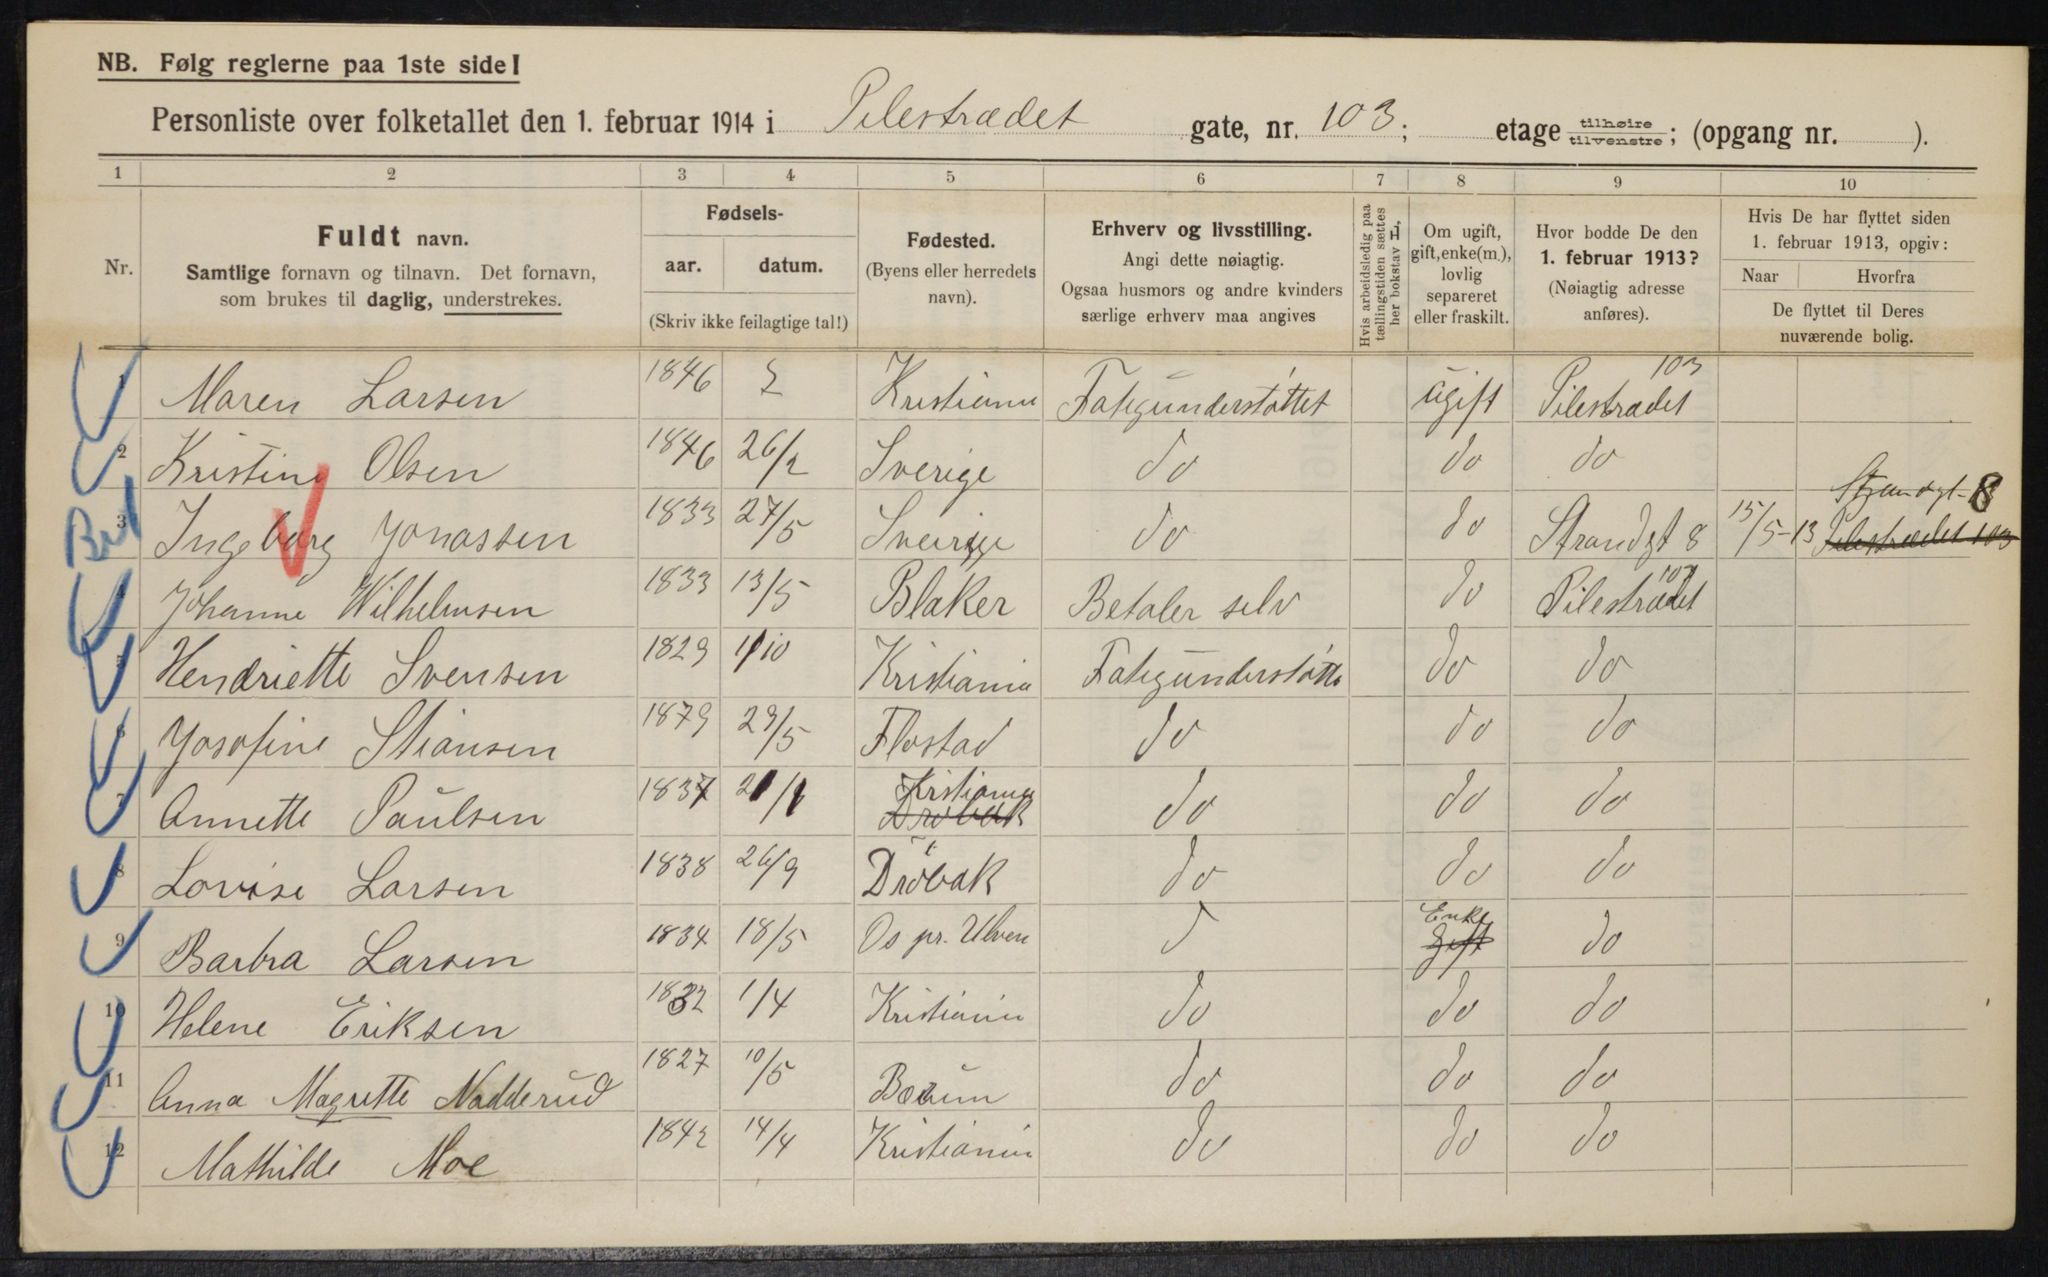 NB. Følg reglerne paa 1ste side!
Personliste over folketallet den 1. februar 1914 i Pilestrædet gate, nr. 103; etage tilhøire tilvenstre; (opgang nr. ).
1 2 3 4 5 6 7 8 9 10
Nr.
Fuldt navn.
Samtlige fornavn og tilnavn. Det fornavn,
som brukes til daglig, understrekes.
Fødsels-
aar. datum.
(Skriv ikke feilagtige tal!)
Fødested.
(Byens eller herredets
navn).
Erhverv og livsstilling.
Angi dette nøiagtig.
Ogsaa husmors og andre kvinders
særlige erhverv maa angives
Hvis arbeidsledig paa
tællingstiden sættes
her bokstav L,
Om ugift,
gift, enke(m.),
lovlig
separeret
eller fraskilt.
Hvor bodde De den
1. februar 1913?
(Nøiagtig adresse
anføres).
Hvis De har flyttet siden
1. februar 1913, opgiv:
Naar Hvorfra
De flyttet til Deres
nuværende bolig.
1 Maren Larsen 1846 Kristiania Fatigunderstøttet ugift Pilestrædet 103
2 Kristine Olsen 1846 26/2 Sverige do do do
3 Ingeborg Jonassen 1833 27/5 Sverige do do Strandgt 8 15/5-13 Pilestrædet 103 Strandgt 8
4 Johanne Wilhelmsen 1833 13/5 Blaker Betaler selv do Pilestrædet 103
5 Hendriette Svensen 1829 1/10 Kristiania Fatigunderstøtte do do
6 Josofine Stiansen 1879 29/5 Flostad do do do
7 Annette Paulsen 1837 21/1 Kristiania Drøbak do do do
8 Lovise Larsen 1838 26/9 Drøbak do do do
9 Barbra Larsen 1834 18/5 Os pr. Ulven Enke gift do
10 Helene Eriksen 1832 1/4 Kristiania do do do
11 Anna Magrette Nadderud 1827 10/5 Bærum do do do
12 Mathilde Moe 1842 14/4 Kristiania do do do